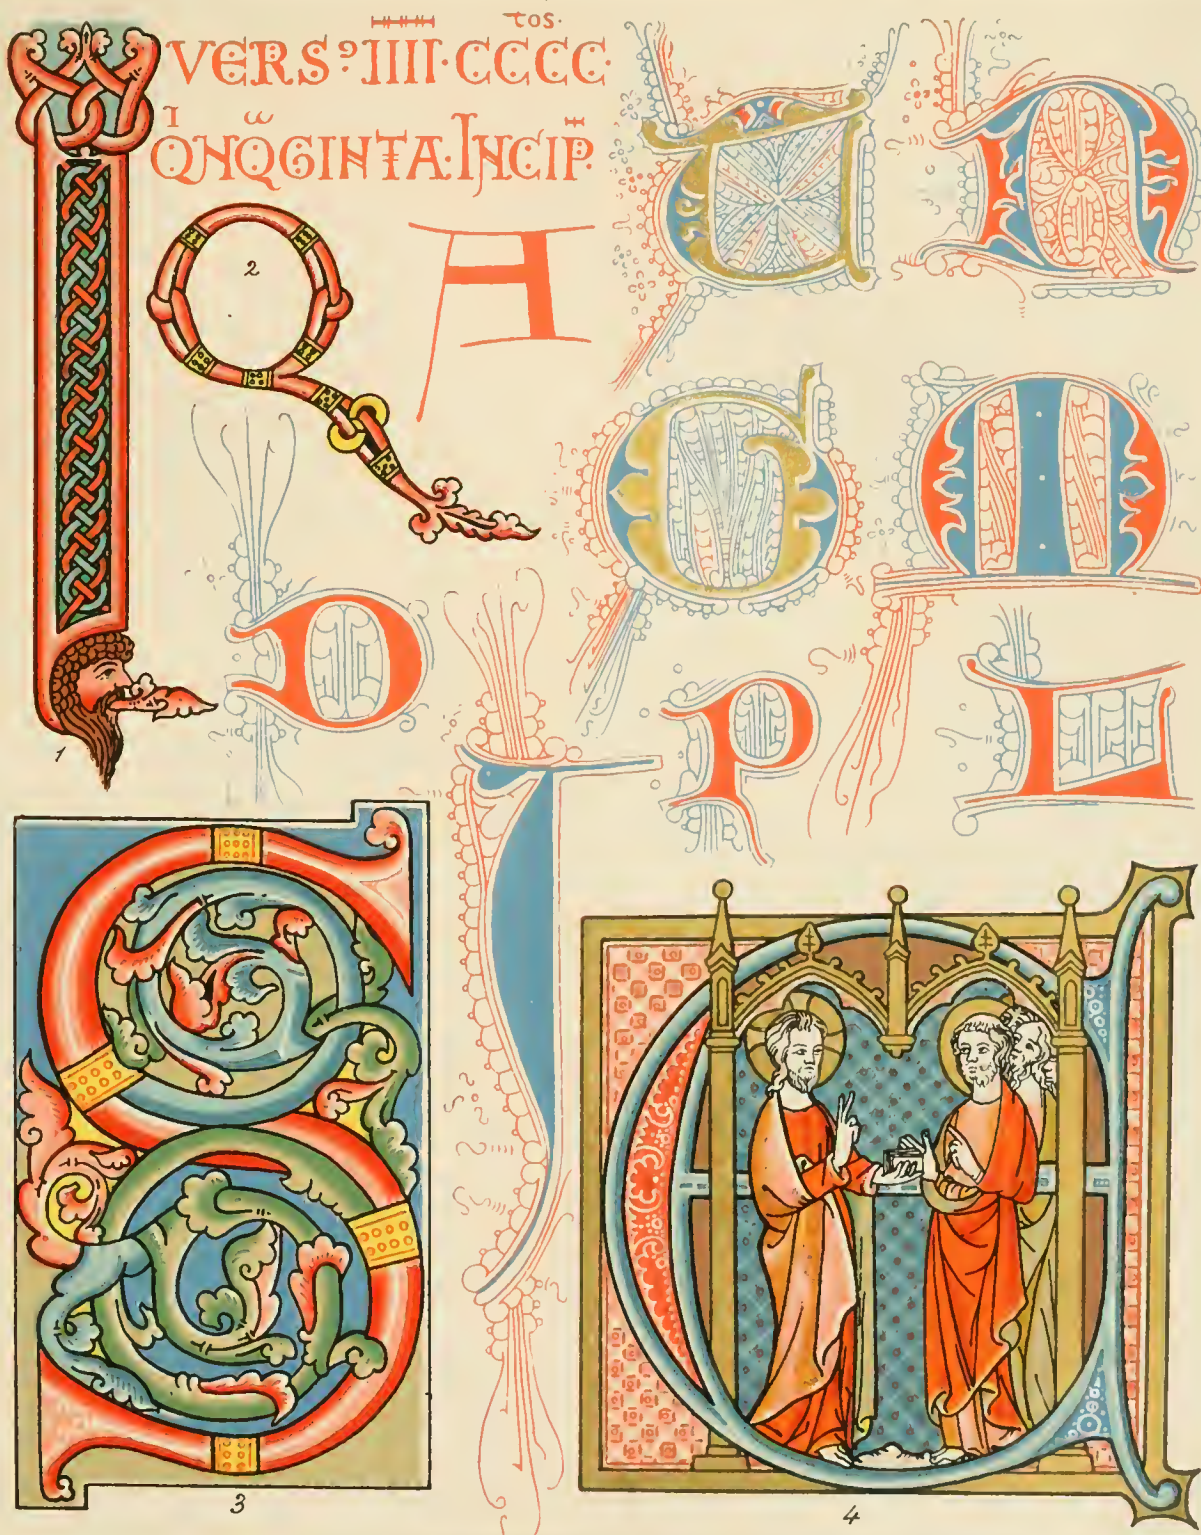 tos.
VERSꝰ·IIII·CCCC·
I ω
QNQGINTA·INCIP̄.
2
A
U
N
G
M
D
P
L
I
1
S
3
E
4